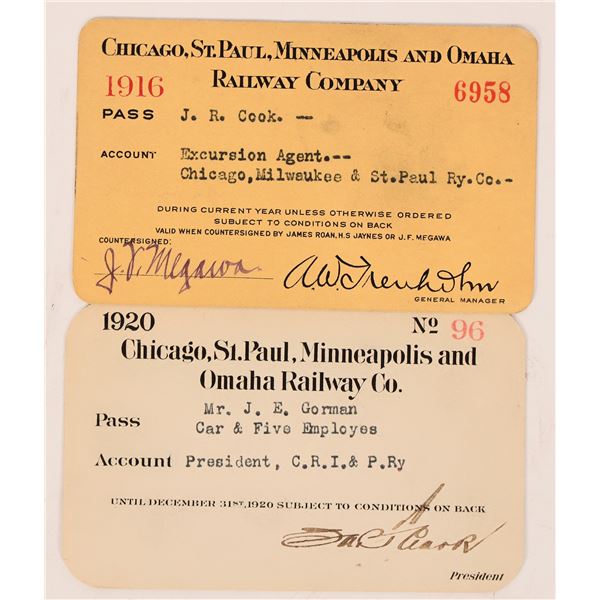 CHICAGO, ST. PAUL, MINNEAPOLIS AND OMAHA
RAILWAY COMPANY
1916 6958
PASS J. R. Cook. --
ACCOUNT Excursion Agent.--
Chicago,Milwaukee & St.Paul Ry.Co.-
DURING CURRENT YEAR UNLESS OTHERWISE ORDERED
SUBJECT TO CONDITIONS ON BACK
VALID WHEN COUNTERSIGNED BY JAMES ROAN, H.S JAYNES OR J.F. MEGAWA
COUNTERSIGNED:
J. F. Megawa. A.W. Trenholm
GENERAL MANAGER
1920 No 96
Chicago, St. Paul, Minneapolis and
Omaha Railway Co.
Mr. J. E. Gorman
Pass Car & Five Employes
Account President, C.R.I.& P.Ry
UNTIL DECEMBER 31ST, 1920 SUBJECT TO CONDITIONS ON BACK
President